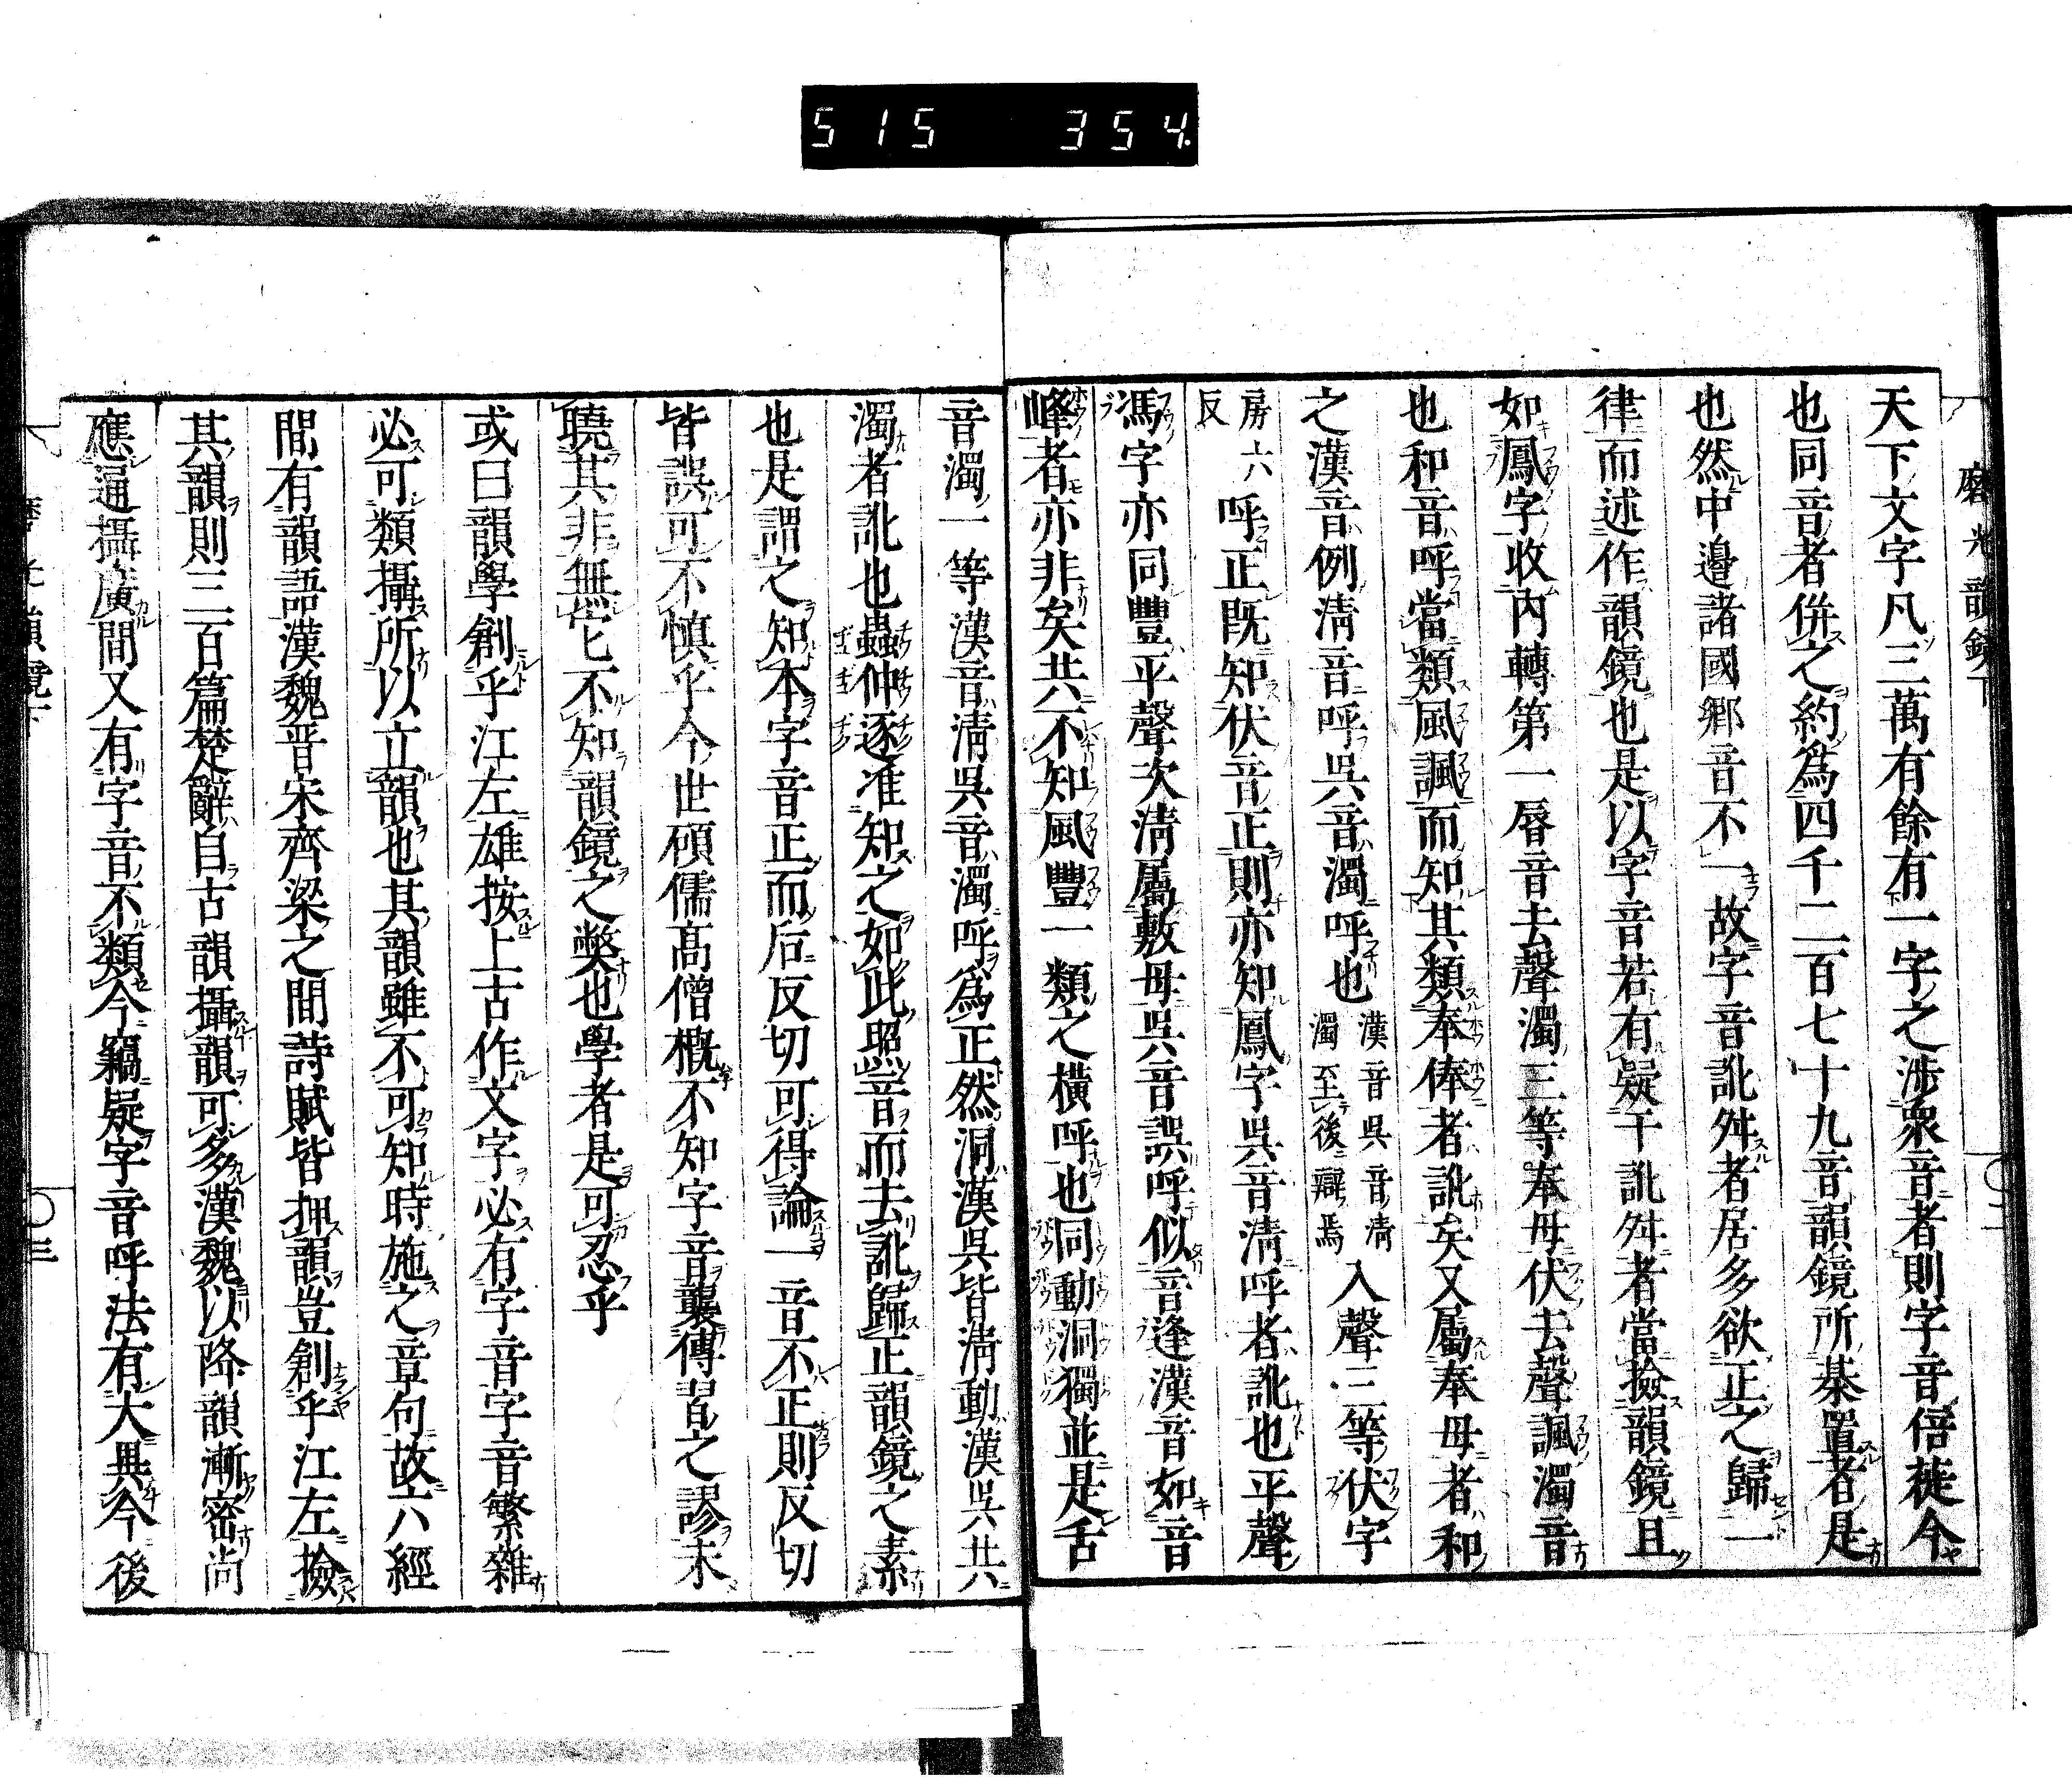 515 354
磨光韻鏡下
天下文字凡三萬有餘有一字之涉衆音者則字音倍蓰今
也同音者併之約爲四千二百七十九音韻鏡所綦置者是
也然中邉諸國郷音不一故字音訛舛者居多欲正之歸一
律而述作韻鏡也是以字音若有疑于訛舛者當撿韻鏡且
如鳳字收内轉第一唇音去聲濁三等奉母伏去聲諷濁音
也和音呼當類風諷而知其類奉俸者訛矣又屬奉母者和
之漢音例淸音呼吳音濁呼也漢音吳音淸濁至後辯焉入聲三等伏字
房六反呼正既知伏音正則亦知鳳字吳音淸呼者訛也平聲
馮字亦同豐平聲次淸屬敷母吳音誤呼似音逢漢音如音
峰者亦非矣共不知風豐一類之橫呼也同動洞獨並是舌
音濁一等漢音淸吳音濁呼爲正然洞漢吳皆淸動漢吳共
濁者訛也蟲仲逐准知之如此照音而去訛歸正韻鏡之素
也是謂之知本字音正而后反切可得論一音不正則反切
皆誤可不慎乎今世碩儒高僧概不知字音襲傳習之謬未
曉其非無它不知韻鏡之獘也學者是可忍乎
或曰韻學創乎江左雄按上古作文字必有字音字音繁雜
必可類攝所以立韻也其韻雖不可知時施之章句故六經
間有韻語漢魏晋宋齊梁之間詩賦皆押韻豈創乎江左撿
其韻則三百篇楚辭自古韻攝韻可多漢魏以降韻漸密尚
應通攝廣間又有字音不類今竊疑字音呼法有大異今後
磨光韻鏡下
三